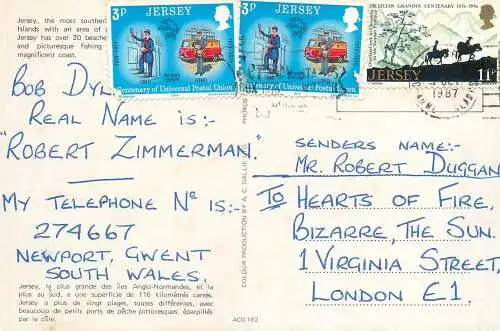 Jersey, the most souther
Islands with an area of
Jersey has over 20 beache
and picturesque fishing
magnificent coast.
3P JERSEY
Centenary of Universal Postal Union
3P JERSEY
Centenary of Universal Postal Union
DR LILIAN GRANDIN CENTENARY 1876-1976
JERSEY 11P
1987
BOB DYL
REAL NAME IS:-
"ROBERT ZIMMERMAN."
MY TELEPHONE No IS:-
274667
NEWPORT, GWENT
SOUTH WALES.
Jersey, la plus grande des îles Anglo-Normandes, et la
plus au sud, a une superficie de 116 kilomètres carrés.
Jersey a plus de vingt plages, toutes différentes, avec
beaucoup de petits ports de pêche pittoresques, éparpillés
par la côte.
COLOUR PRODUCTION BY A. C. GALLIE
ACG 162
SENDERS NAME:-
MR. ROBERT DUGGAN
TO HEARTS OF FIRE,
BIZARRE, THE SUN.
1 VIRGINIA STREET,
LONDON E1.